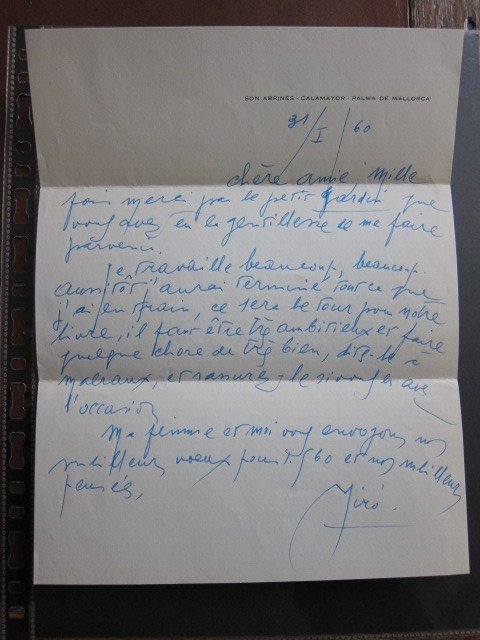 SON ABRINES - CALAMAYOR - PALMA DE MALLORCA
31/I/60
chère amie, Mille
fois merci par le petit jardin que
vous avez eu la gentillesse de me faire
parvenir.
Je travaille beaucoup, beaucoup.
aussitôt j'aurai terminé tout ce que
j'ai en train, ce sera le tour pour notre
livre, il faut être très ambitieux et faire
quelque chose de très bien, dites-le à
Malraux, et rassurez-le si vous en avez
l'occasion
Ma femme et moi vous envoyons nos
meilleurs voeux pour 1960 et nos meilleures
pensées,
Miró.